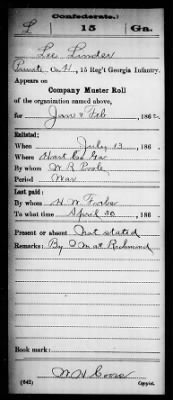 (Confederate.)
L 15 Ga.
Lee Linder
Private, Co. H, 15 Reg't Georgia Infantry.
Appears on
Company Muster Roll
of the organization named above,
for Jan & Feb, 1862.
Enlisted:
When July 13, 186
Where Hart Co Ga
By whom W R Poole
Period War
Last paid:
By whom H W Forbs
To what time April 30, 186
Present or absent Not stated
Remarks: By Q M at Richmond
Book mark:
(642) Copyist.